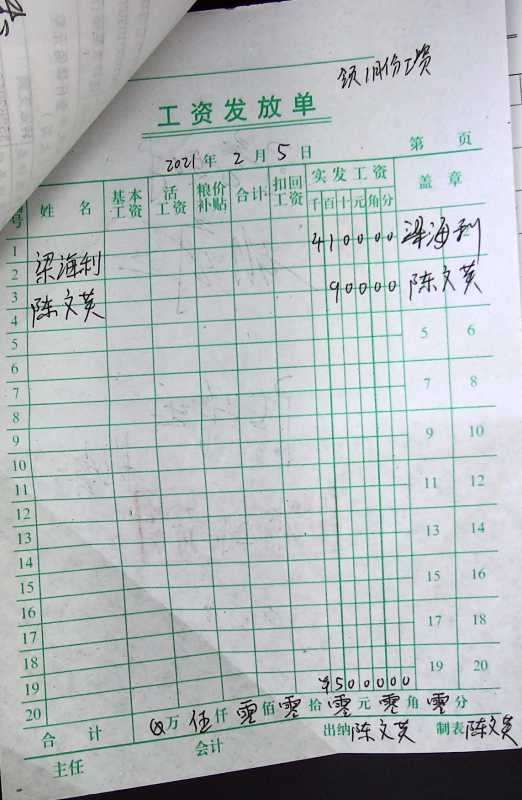 领1月份工资
工资发放单
2021年2月5日 第 页
号 姓名 基本工资 活工资 粮价补贴 合计 扣回工资 实发工资 千百十元角分 盖章
1
2 梁海利 410000 梁海利
3
4 陈文英 90000 陈文英
5 5 6
6
7 7 8
8
9 9 10
10
11 11 12
12
13 13 14
14
15 15 16
16
17 17 18
18
19 ¥500000 19 20
20
合计 万伍仟零佰零拾零元零角零分
主任 会计 出纳陈文英 制表陈文英